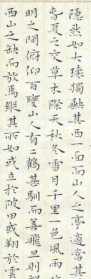 隱然如大環獨缺其西一面而山人之亭適當其缺
春夏之交草木際天秋冬雪月千里一色風雨晦
明之間俯仰百變山人有二鶴甚馴而善飛旦則望
西山之缺而放焉縱其所如或立於陂田或翔於雲